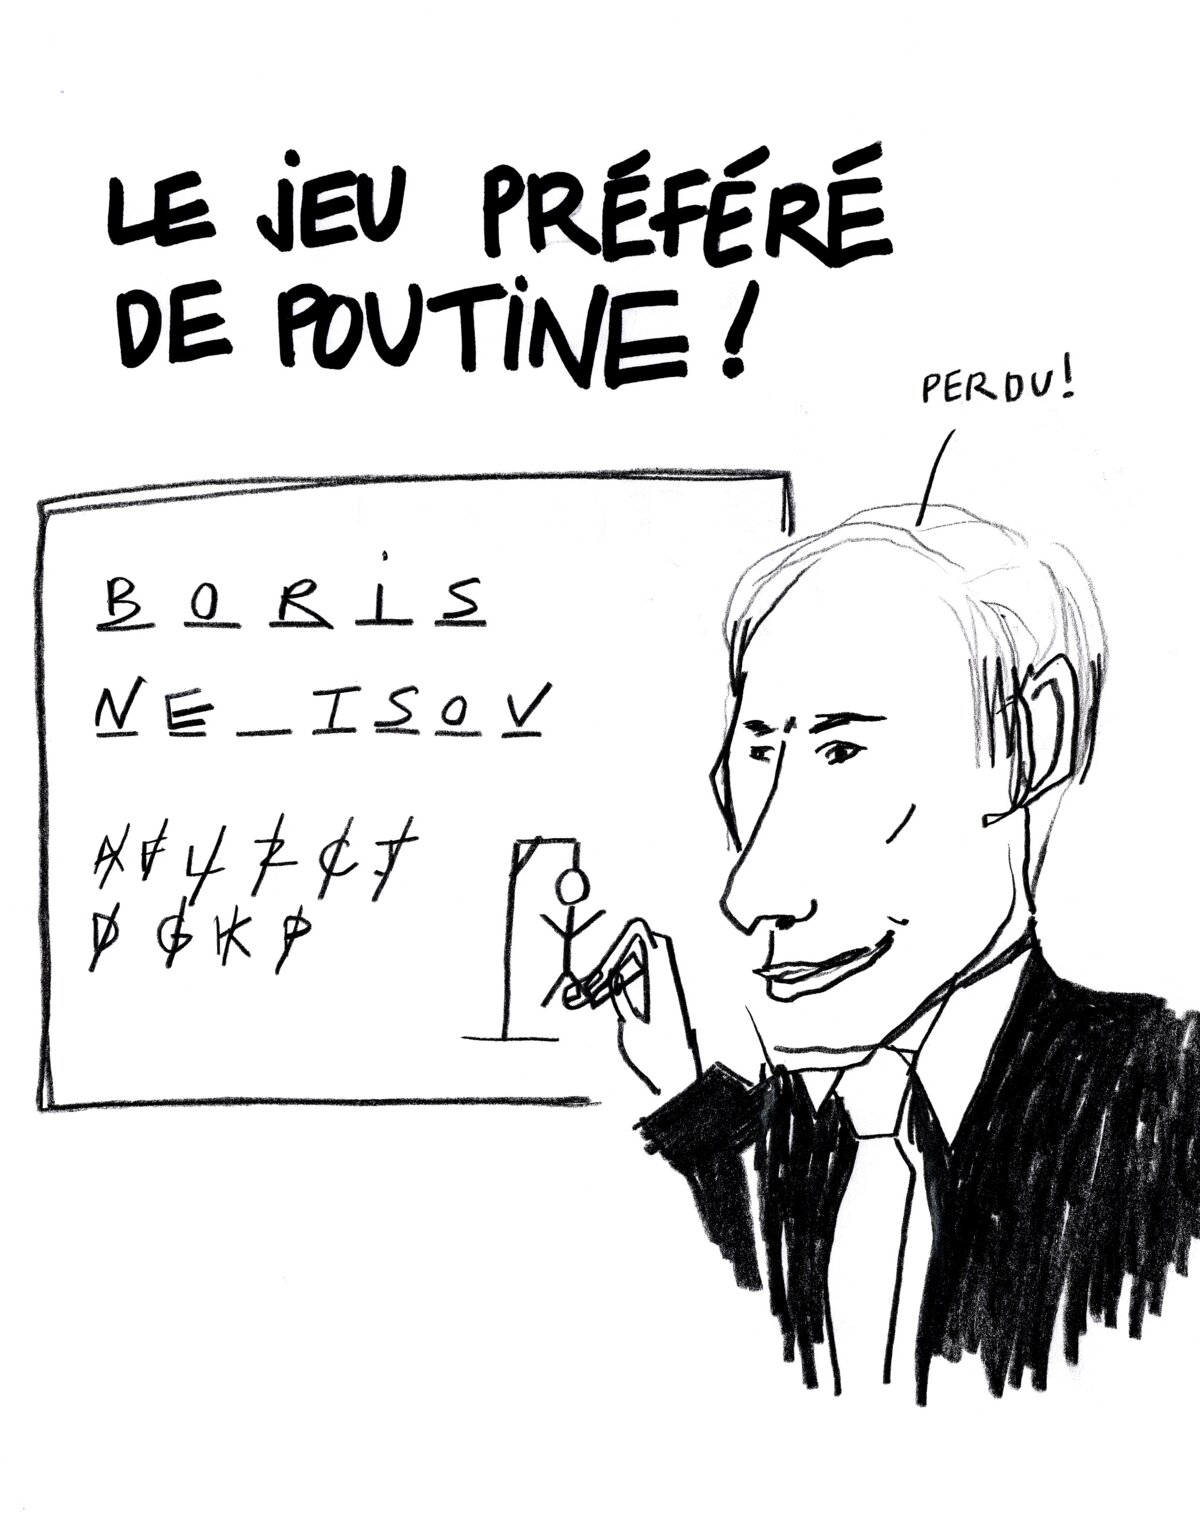 LE JEU PRÉFÉRÉ
DE POUTINE !
PERDU !
B O R I S
N E _ I S O V
A F L Z C J
D G K P